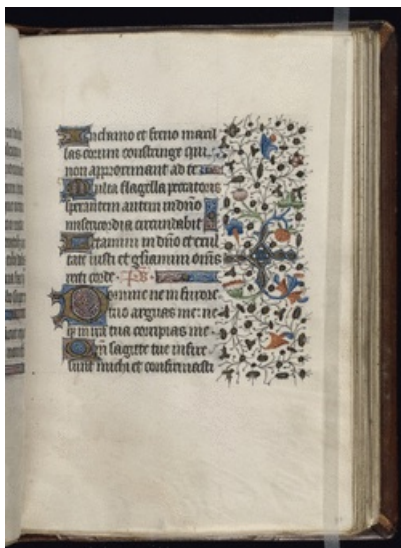 In chamo et freno maxil
las eorum constringe qui
non approximant ad te
Multa flagella peccatoris
sperantem autem in dn̄o
misericordia circundabit
Letamini in dn̄o et exul
tate iusti et gl̄iamini om̄s
recti corde. ps
Domine ne in furore
tuo arguas me: ne
in ira tua corripias me
Qm̄ sagitte tue infixe
sunt michi et confirmasti